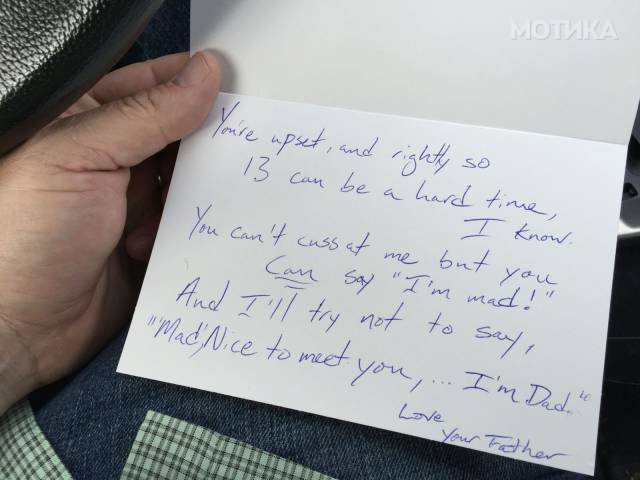 МОТИКА
You're upset, and rightly so
13 can be a hard time,
I know.
You can't cuss at me but you
Can say "I'm mad!"
And I'll try not to say,
"'Mad', Nice to meet you, ... I'm Dad."
Love
Your Father